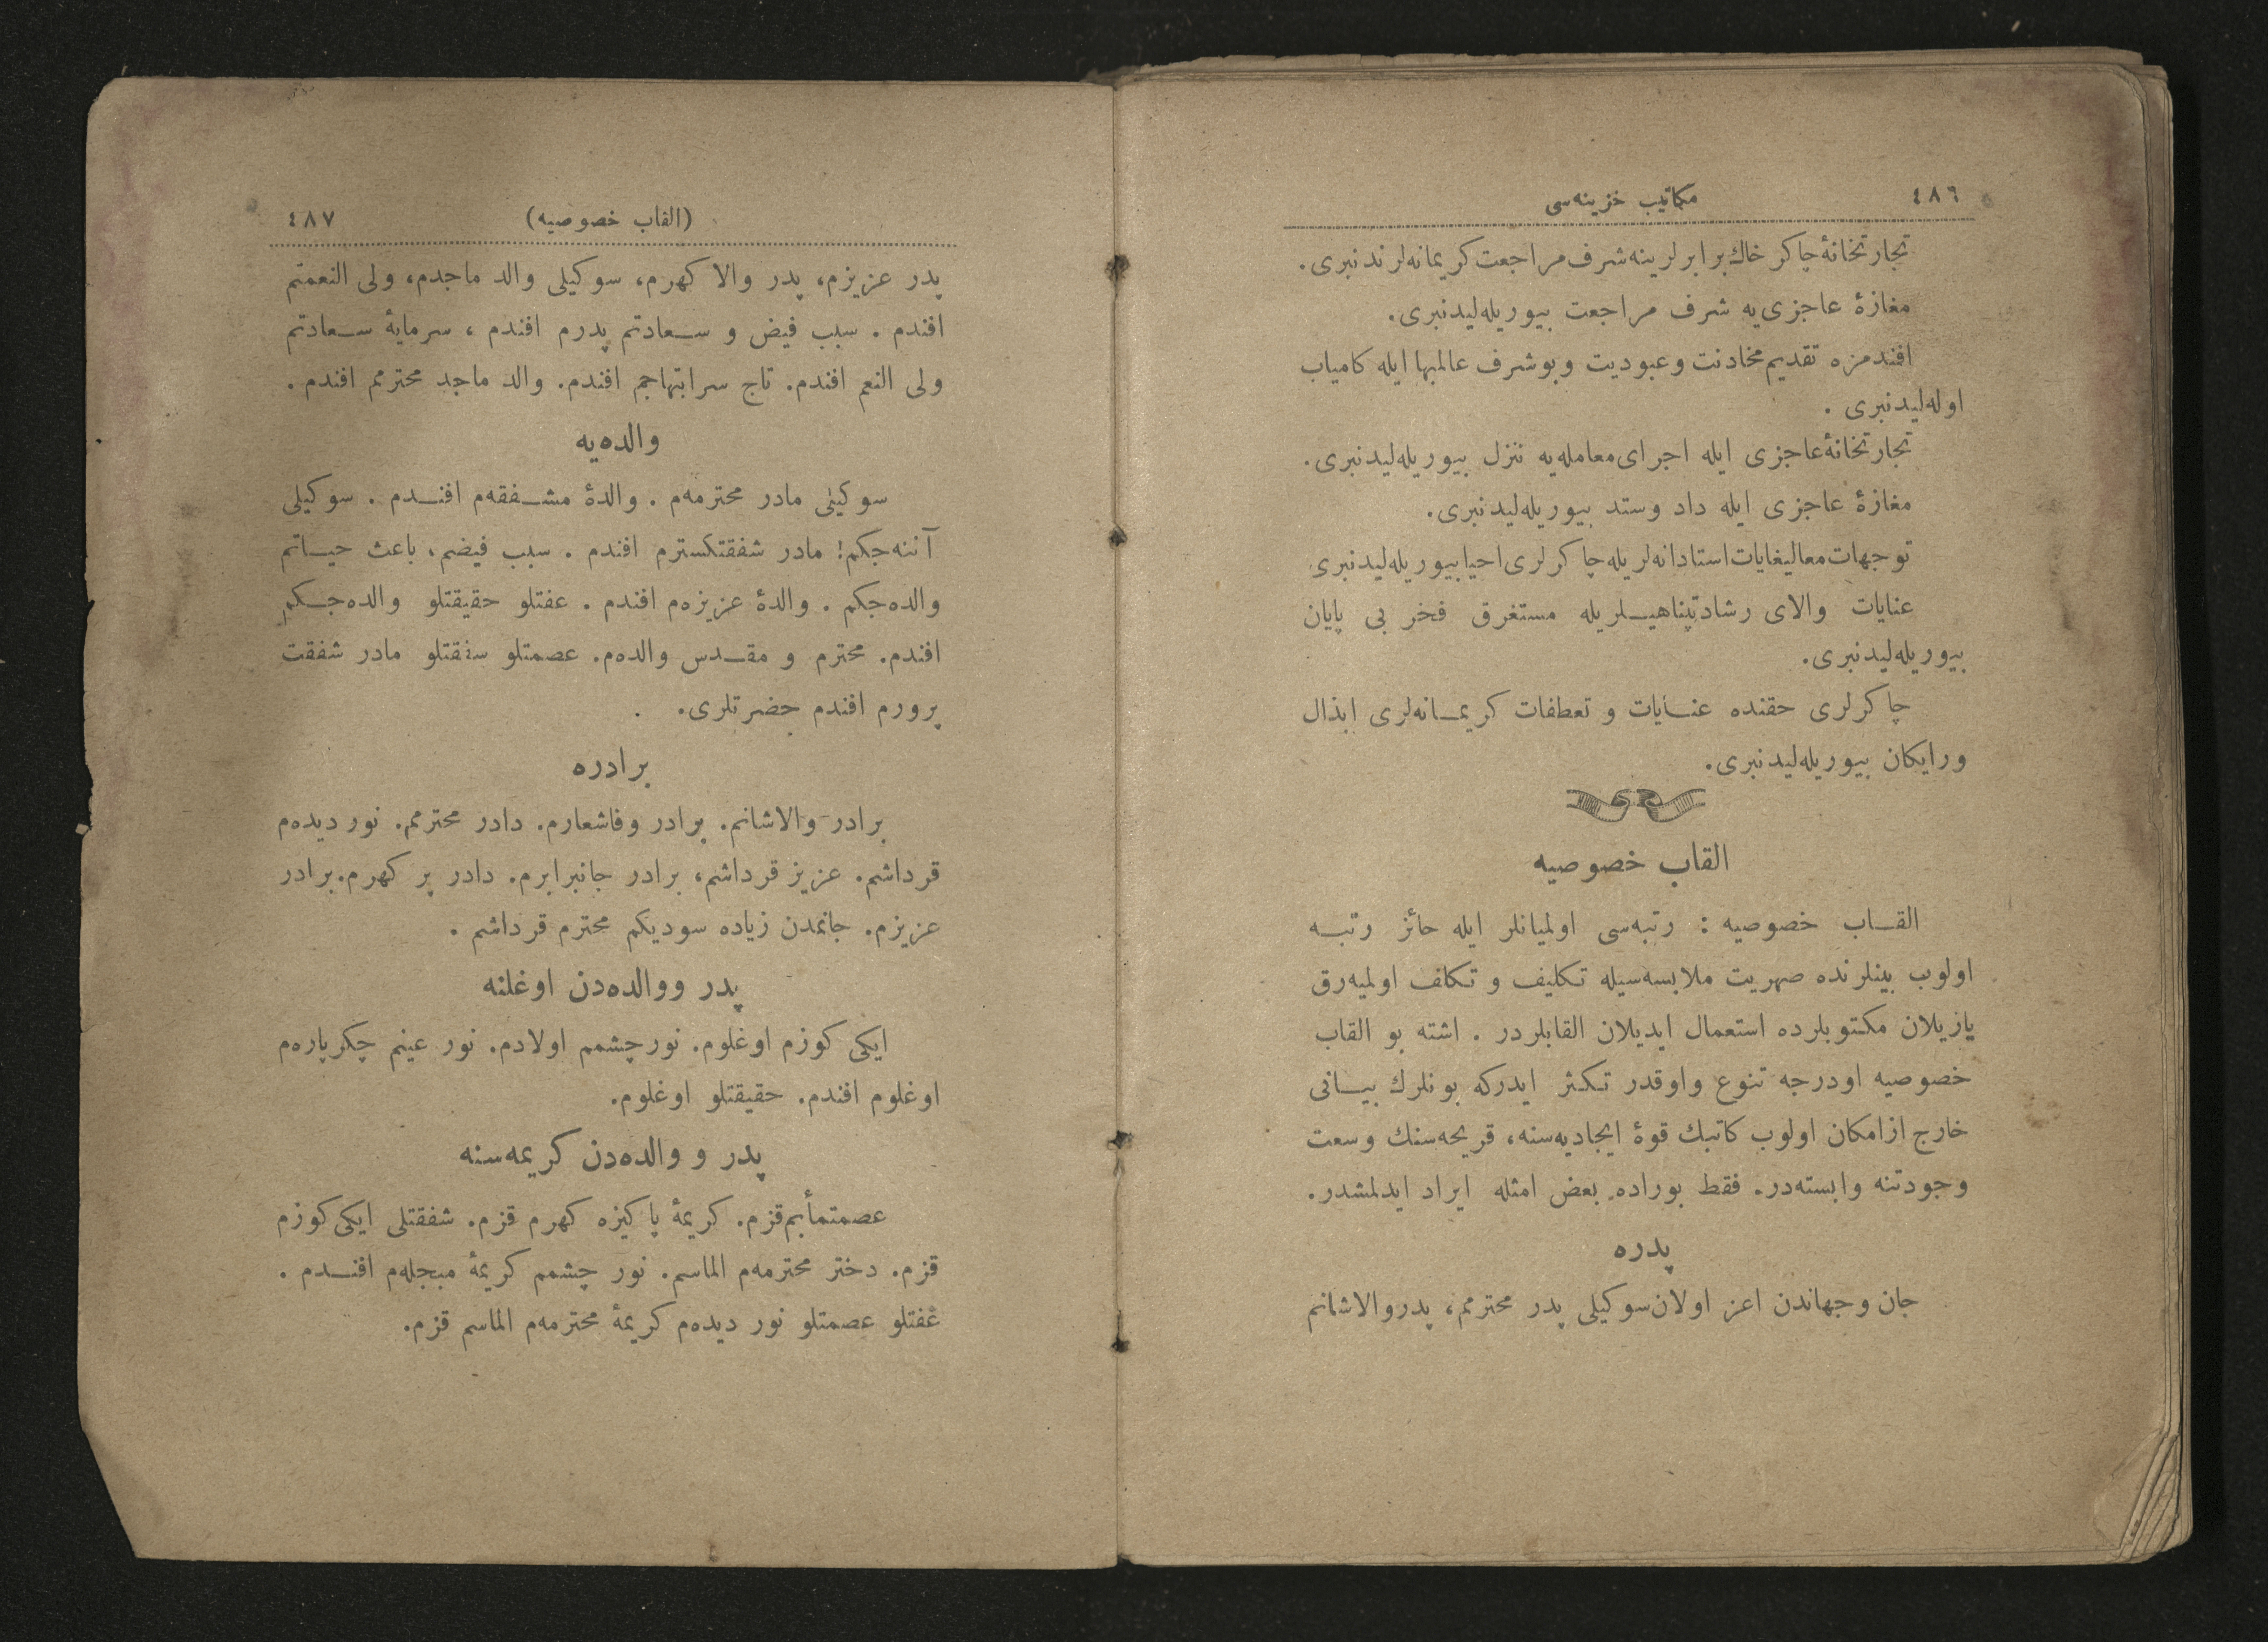 ٤٨٦
مكاتيب خزينه‌سى
تجارتخانۀ چاكر خاك برابرلرينه شرف مراجعت كريمانه‌لرندنبرى.
مغازۀ عاجزى‌يه شرف مراجعت بيوريله‌ليدنبرى.
افندمزه تقديم مخادنت وعبوديت وبوشرف عالمبها ايله كامياب
اوله‌ليدنبرى .
تجارتخانۀ عاجزى ايله اجراى معامله‌يه تنزل بيوريله‌ليدنبرى.
مغازۀ عاجزى ايله داد وستد بيوريله‌ليدنبرى.
توجهات معاليغايات استادانه‌لريله چاكرلرى احيا بيوريله‌ليدنبرى
عنايات والاى رشادتپناهيلريله مستغرق فخر بى پايان
بيوريله‌ليدنبرى.
چاكرلرى حقنده عنايات و تعطفات كريمانه‌لرى ابذال
ورايكان بيوريله‌ليدنبرى.
القاب خصوصيه
القاب خصوصيه : رتبه‌سى اولميانلر ايله حائز رتبه
اولوب بينلرنده صهريت ملابسه‌سيله تكليف و تكلف اولميه‌رق
يازيلان مكتوبلرده استعمال ايديلان القابلردر . اشته بو القاب
خصوصيه اودرجه تنوع واوقدر تكثر ايدركه بونلرك بيانى
خارج ازامكان اولوب كاتبك قوۀ ايجاديه‌سنه، قريحه‌سنك وسعت
وجودتنه وابسته‌در. فقط بوراده بعض امثله ايراد ايدلمشدر.
پدره
جان وجهاندن اعز اولان سوكيلى پدر محترمم، پدروالاشانم
(القاب خصوصيه)
٤٨٧
پدر عزيزم، پدر والا كهرم، سوكيلى والد ماجدم، ولى النعمتم
افندم . سبب فيض و سعادتم پدرم افندم ، سرمايۀ سعادتم
ولى النعم افندم. تاج سرابتهاجم افندم. والد ماجد محترمم افندم .
والده‌يه
سوكيلى مادر محترمه‌م . والدۀ مشفقه‌م افندم . سوكيلى
آننه‌جكم! مادر شفقتكسترم افندم . سبب فيضم، باعث حياتم
والده‌جكم . والدۀ عزيزه‌م افندم . عفتلو حقيقتلو والده‌جكم
افندم. محترم و مقدس والده‌م. عصمتلو شفقتلو مادر شفقت
پرورم افندم حضرتلرى.
برادره
برادر والاشانم. برادر وفاشعارم. دادر محترمم. نور ديده‌م
قرداشم. عزيز قرداشم، برادر جانبرابرم. دادر پر كهرم. برادر
عزيزم. جانمدن زياده سوديكم محترم قرداشم .
پدر ووالده‌دن اوغلنه
ايكى كوزم اوغلوم. نورچشمم اولادم. نور عينم چكرپاره‌م
اوغلوم افندم. حقيقتلو اوغلوم.
پدر و والده‌دن كريمه‌سنه
عصمتمأبم قزم. كريمۀ پاكيزه كهرم قزم. شفقتلى ايكى كوزم
قزم. دختر محترمه‌م الماسم. نور چشمم كريمۀ مبجله‌م افندم .
عفتلو عصمتلو نور ديده‌م كريمۀ محترمه‌م الماسم قزم.